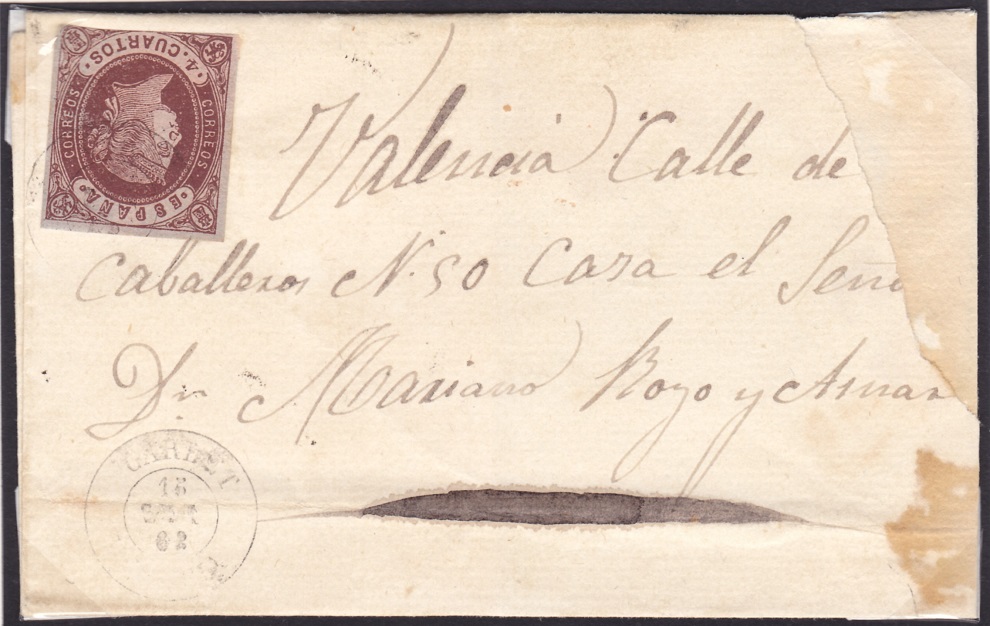 4. CUARTOS.
CORREOS
CORREOS
ESPAÑA
Valencia Calle de
Caballeros N. 50 Casa el Seño
Dn Mariano Royo y Asnar
CARLET
15
62